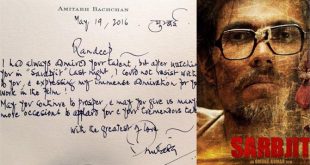 AMITABH BACHCHAN
May 19, 2016
मुम्बई
Randeep
I had always admired your talent, but after watching
you in "Sarbjit" last night, I could not resist writing
to you, & expressing my immense admiration, for your
work in the film!
May you continue to prosper, & may you give us many
more occasions to applaud you & your tremendous talent
with the greatest of love
SARBJIT